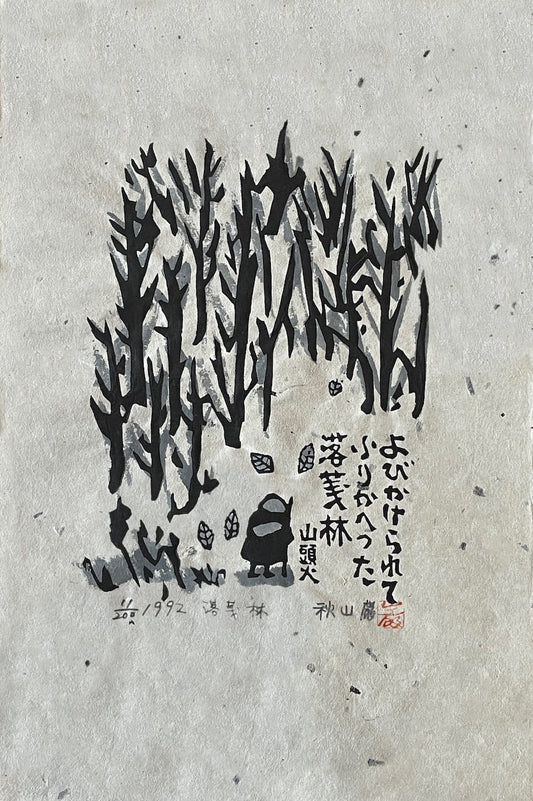 よびかけられて
ふりかへつた
落葉林
山頭火
11/200 1992 落葉林 秋山巌